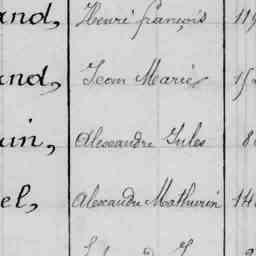 and, Henri françois 119
and, Jean Marie 15
uin, Alexandre Jules 8
el, Alexandre Mathurin 14